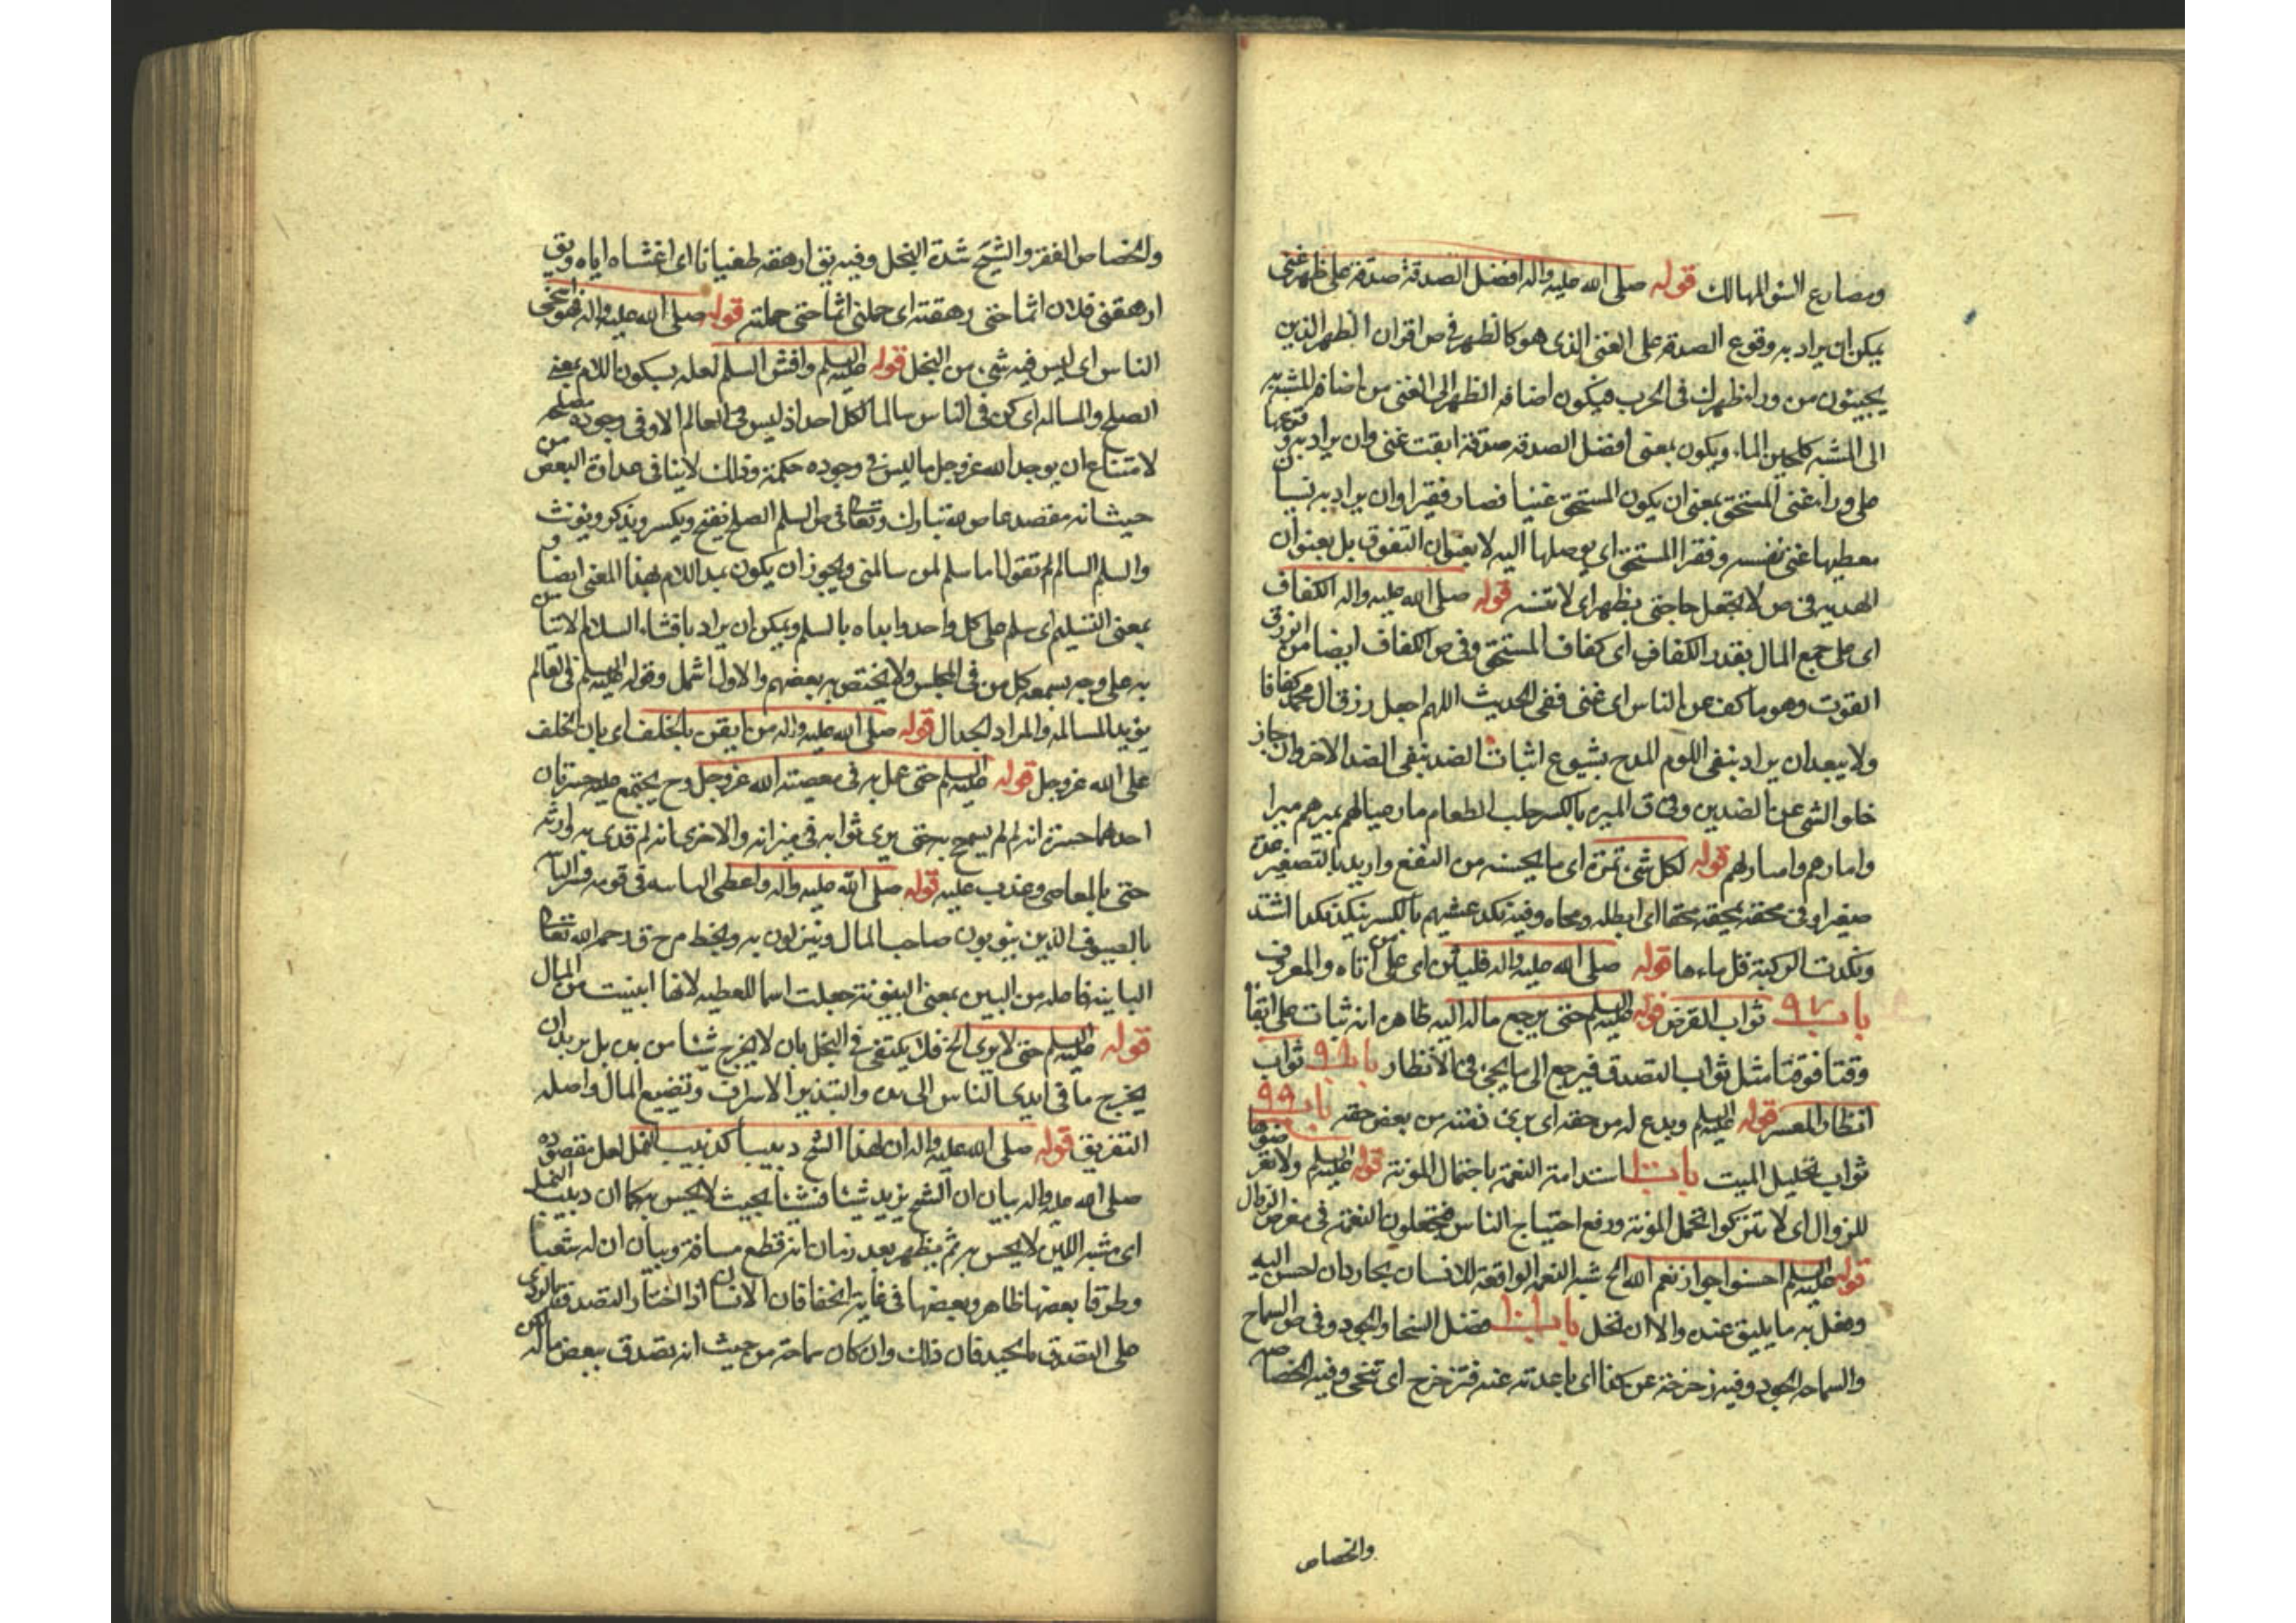 ومصارع السوء المهالك قوله صلى الله عليه واله افضل الصدقة صدقة على ظهر غنى
يمكن ان يراد به وقوع الصدقة على الغنى الذى هو كالظهر فى ص اقران الظهر الذين
يجيئون من وراء ظهرك فى الحرب فيكون اضافه الظهر الى الغنى من اضافه المشبه به
الى المشبه كلجين الماء ويكون بمعنى افضل الصدقه صدقة ابقت غنى وان يراد به وقوعها
على وراء غنى المستحق بمعنى ان يكون المستحق غنيا فصار فقيرا وان يراد به نسيان
معطيها غنى نفسه وفقر المستحق اى يوصلها اليه لا بعنوان التفوق بل بعنوان
الهديه فى ص لا تجعل حاجتى بظهر اى لا تنسه قوله صلى الله عليه واله الكفاف
اى على جمع المال بقدر الكفاف اى كفاف المستحق وفى ص الكفاف ايضا من الرزق
القوت وهو ما كف عن الناس اى غنى ففى الحديث اللهم اجعل رزق ال محمد كفافا
ولا يبعدان يراد بنفى اللوم المدح بشيوع اثبات الضد بنفى الضد الاخر وان جاز
خلو الشئ عن الضدين وفى ق الميره بالكسر جلب الطعام مار عياله يميرهم ميرا
وامارهم وامتار لهم قوله لكل شئ ثمرة اى ما يحسنه من النفع واريد بالتصغير عده
صغيرا وفى محقه يمحقه محقا اى ابطله ومحاه وفيه نكد عيشهم بالكسر ينكد نكدا اشتد
ونكدت الركية قل ماءها قوله صلى الله عليه واله فليأتن اى على من اتاه والمعروف
باب ٩٧ ثواب القرض قوله عليه السلم حتى يرجع ماله اليه ظاهره انه ثبات على ابقا
وقتا فوقتا مثل ثواب التصدق فيرجع الى ما يجئ فى الأنظار باب ٩٨ ثواب
انظار المعسر قوله عليه السلم ويدع له من حقه اى برئ ذمته من بعض حقه باب ٩٩
ثواب تحليل الميت باب ١٠٠ استدامة النعمة باحتمال المونة قوله عليه السلم ولا تعرضوها
للزوال اى لا تتركوا تحمل المونة ورفع احتياج الناس فتجعلون النعمة فى معرض الزوال
قوله عليه السلم احسنوا جوار نعم الله الخ شبه النعم الواقعة للانسان بجار دان احسن اليه
وفعل به ما يليق عنده والا ان تحل باب ١٠١ فضل السخا والجود وفى ص السماح
والسماحه الجود وفيه زحزحته عن كذا اى باعدته عنه فتزحزح اى تنحى وفيه الخصاصه
والخصاص
والخصاص الفقر والشح شدة البخل وفيه يق ارهقه طغيانا اى اغشاه اياه ويق
ارهقنى فلان اثما حتى رهقته اى حملنى اثما حتى حملته قوله صلى الله عليه واله فهو اسخى
الناس اى ليس فيه شئ من البخل قوله عليه السلم وافش السلم لعله بسكون اللام بمعنى
الصلح والمسالمه اى كن فى الناس سالما لكل احد اذ ليس فى العالم الا وفى وجوده مصلحه
لامتناع ان يوجد الله عز وجل ما ليس فى وجوده حكمة وذلك لا ينافى عداوة البعض من
حيث انه مقصد عاص لله تبارك وتعالى فى ص السلم الصلح يفتح ويكسر ويذكر ويونث
والسلم السالم تقول انا سلم لمن سالمنى ويجوز ان يكون بمد اللام بهذا المعنى ايضا و
بمعنى التسليم اى سلم على كل واحد وابداه بالسلم ويمكن ان يراد بافشاء السلام الاتيان
به على وجه يسمعه كل من فى المجلس ولا يختص به بعضهم والاول اشمل وقوله عليه السلم فى العالم
يؤيد المسالمه والمراد الجدال قوله صلى الله عليه واله من ايقن بالخلف اى بان الخلف
على الله عز وجل قوله عليه السلم حتى عمل به فى معصيته الله عز وجل وح يجتمع عليه حسرتان
احدهما حسرة انه لم لم يسمح به حتى يرى ثوابه فى ميزانه والاخرى انه لم قدى به لورثه
حتى بالمعاصى وعذب عليه قوله صلى الله عليه واله واعطى الباسه فى قومه وفسر البا
بالضيوف الذين ينوبون صاحب المال وينزلون به وبخط م ح ق رحمه الله تعالى
الباينه فاصله من البين بمعنى البينونة جعلت اسما للعطيه لانها ابينت من المال
قوله عليه السلم حتى لا يرى الخ فلا يكتفى فى البخل بان لا يخرج شيئا من يده بل يريد ان
يخرج ما فى ايدى الناس الى يده والتبذير الاسراف وتضييع المال واصله
التفريق قوله صلى الله عليه واله ان لهذا الشح دبيبا كدبيب النمل لعل مقصوده
صلى الله عليه واله بيان ان الشح يزيد شيئا فشيئا بحيث لا يحس به كما ان دبيب النمل
اى مشيه اللين لا يحس به ثم يظهر بعد زمان انه قطع مسافة وبيان ان له شعبا
وطرقا بعضها ظاهر وبعضها فى غاية الخفا فان الانسان اذا اختار التصدق بالردى
على التصدق بالجيد فان ذلك وان كان سماحة من حيث انه تصدق ببعض ماله لكن